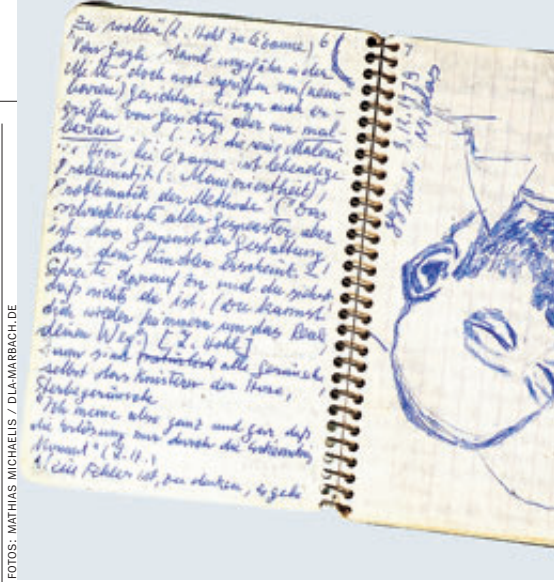 zu wollen" (L. Hohl zu Cézanne) 6
"Van Gogh stand ungefähr in der
Mitte, doch noch ergriffen von (
) Gesichten, C. war auch er-
griffen von Gesichten aber nur mal-
." (: ist die reine Malerei
"Hier, bei Cézanne ist lebendige
Problematik (: Manieriertheit),
Problematik der Methode" ("Das
schrecklichste aller Gespenster aber
ist das Gespenst der Gestaltung,
das dem Künstler erscheint.
Schreite darauf zu und du siehst
daß nichts da ist. (Du kannst
dich wieder kümmern um das Reale,
deinen Weg") [L. Hohl]
sind alle Geräusche,
selbst das Knistern der Hose,
Sterbegeräusche
"Ich meine also ganz und gar, daß
die Erlösung nur durch die Erkenntnis
kommt" (L.H.)
Fehler ist, zu denken, es gehe
7
3.12.1979
FOTOS: MATHIAS MICHAELIS / DLA-MARBACH.DE